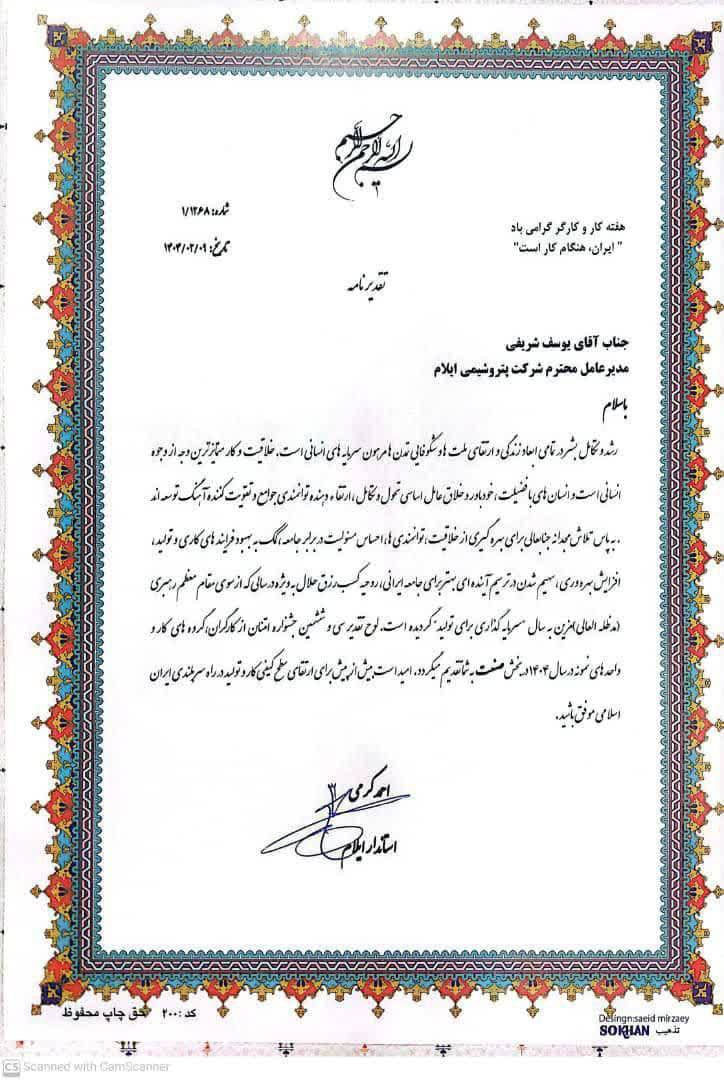 بسم الله الرحمن الرحیم
شماره: ۱/۱۲۶۸
تاریخ: ۱۴۰۴/۰۲/۰۹
هفته کار و کارگر گرامی باد
" ایران، هنگام کار است"
تقدیرنامه
جناب آقای یوسف شریفی
مدیرعامل محترم شرکت پتروشیمی ایلام
باسلام
رشد و تکامل بشر در تمامی ابعاد زندگی و ارتقای ملت ها و شکوفایی تمدن ها مرهون سرمایه های انسانی است. خلاقیت و کار متمایزترین وجه از وجوه
انسانی است و انسان های بافضیلت، خودباور و خلاق عامل اساسی تحول و تکامل، ارتقاء دهنده توانمندی جوامع و تقویت کننده آهنگ توسعه اند
. به پاس تلاش مجدانه جنابعالی برای بهره گیری از خلاقیت، توانمندی ها، احساس مسئولیت در برابر جامعه، کمک به بهبود فرایندهای کاری و تولید،
افزایش بهره وری، سهیم شدن در ترسیم آینده ای بهتر برای جامعه ایرانی، روحیه کسب رزق حلال به ویژه در سالی که از سوی مقام معظم رهبری
(مدظله العالی) مزین به سال "سرمایه گذاری برای تولید" گردیده است. لوح تقدیر سی و ششمین جشنواره امتنان از کارگران، گروه های کار و
واحدهای نمونه در سال ۱۴۰۴ در بخش صنعت به شما تقدیم میگردد. امید است بیش از پیش برای ارتقای سطح کیفی کار و تولید در راه سربلندی ایران
اسلامی موفق باشید.
احمد کرمی
استاندار ایلام
کد: ۲۰۰۰ حق چاپ محفوظ
Desingn:saeid mirzaey
SOKHAN تذهیب
CS Scanned with CamScanner